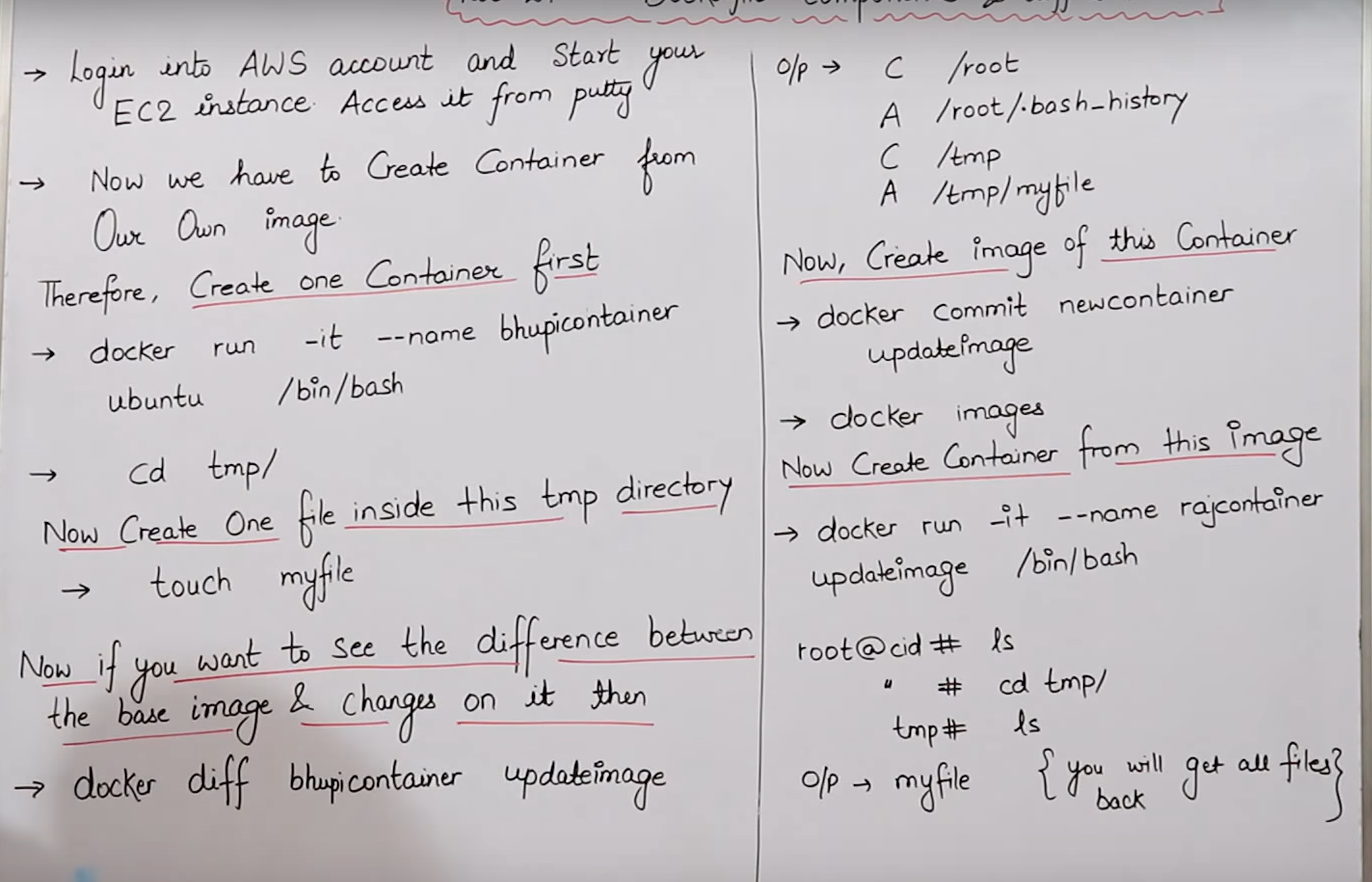 → Login into AWS account and Start your
EC2 instance. Access it from putty
→ Now we have to Create Container from
Our Own image.
Therefore, Create one Container first
→ docker run -it --name bhupicontainer
ubuntu /bin/bash
→ cd tmp/
Now Create One file inside this tmp directory
→ touch myfile
Now if you want to see the difference between
the base image & changes on it then
→ docker diff bhupicontainer updateimage
O/p → C /root
A /root/.bash_history
C /tmp
A /tmp/myfile
Now, Create image of this Container
→ docker commit newcontainer
updateimage
→ docker images
Now Create Container from this image
→ docker run -it --name rajcontainer
updateimage /bin/bash
root@cid # ls
" # cd tmp/
tmp# ls
O/p → myfile { you will get all files }
back